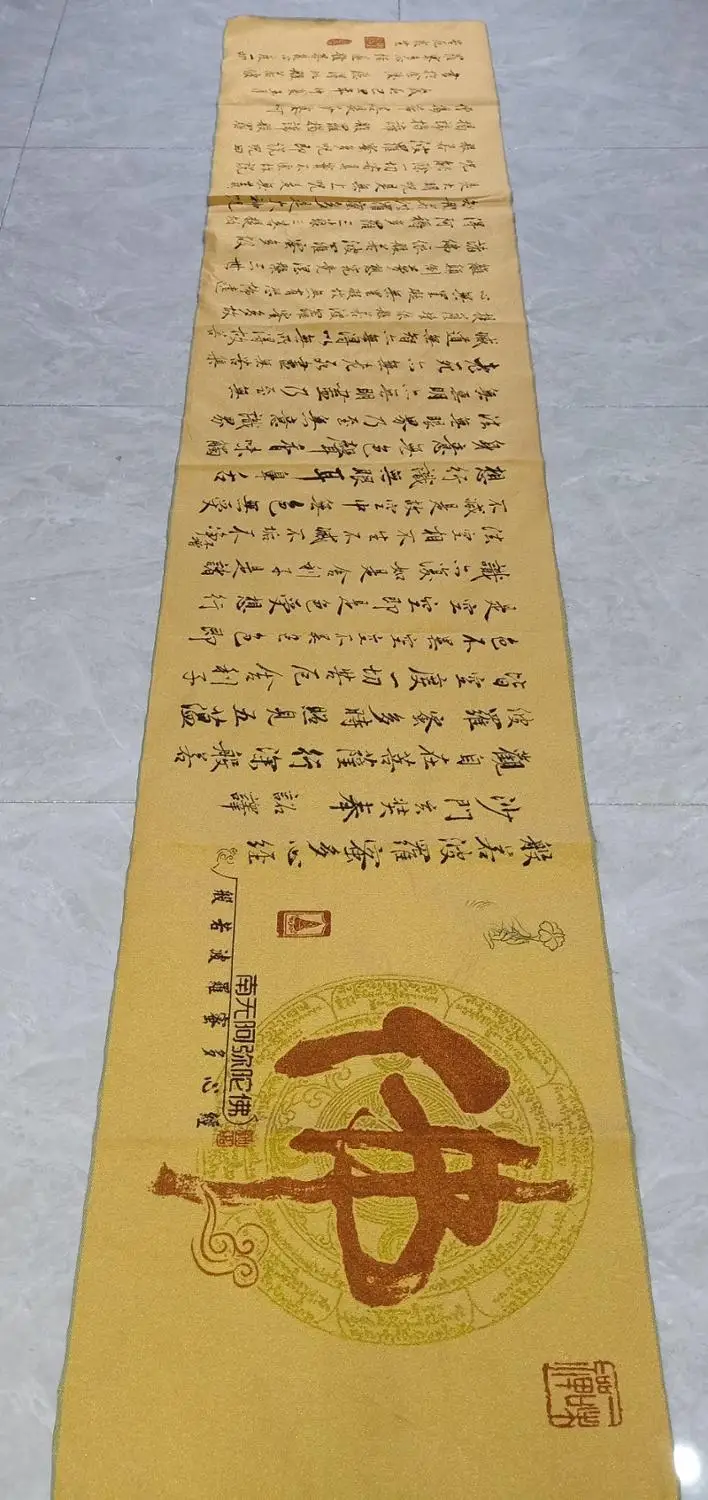 佛
南无阿弥陀佛
般若波羅蜜多心經
般若波羅蜜多心経
沙門玄奘奉 詔譯
觀自在菩薩行深般若
波羅蜜多時照見五蘊
皆空度一切苦厄舍利子
色不異空空不異色色即
是空空即是色受想行
識亦復如是舍利子是諸
法空相不生不滅不垢不淨不增
不減是故空中無色無受
想行識無眼耳鼻舌
身意無色聲香味觸
法無眼界乃至無意識界
無無明亦無無明盡乃至無
老死亦無老死盡無苦集
滅道無智亦無得以無所得故菩
提薩埵依般若波羅蜜多故
心無罣礙無罣礙故無有恐怖遠
離顛倒夢想究竟涅槃三世
諸佛依般若波羅蜜多故
得阿耨多羅三藐三菩提故
知般若波羅蜜多是大神咒
是大明咒是無上咒是無等等
咒能除一切苦真實不虛故說
般若波羅蜜多咒即說咒曰
揭諦揭諦般羅揭諦般羅